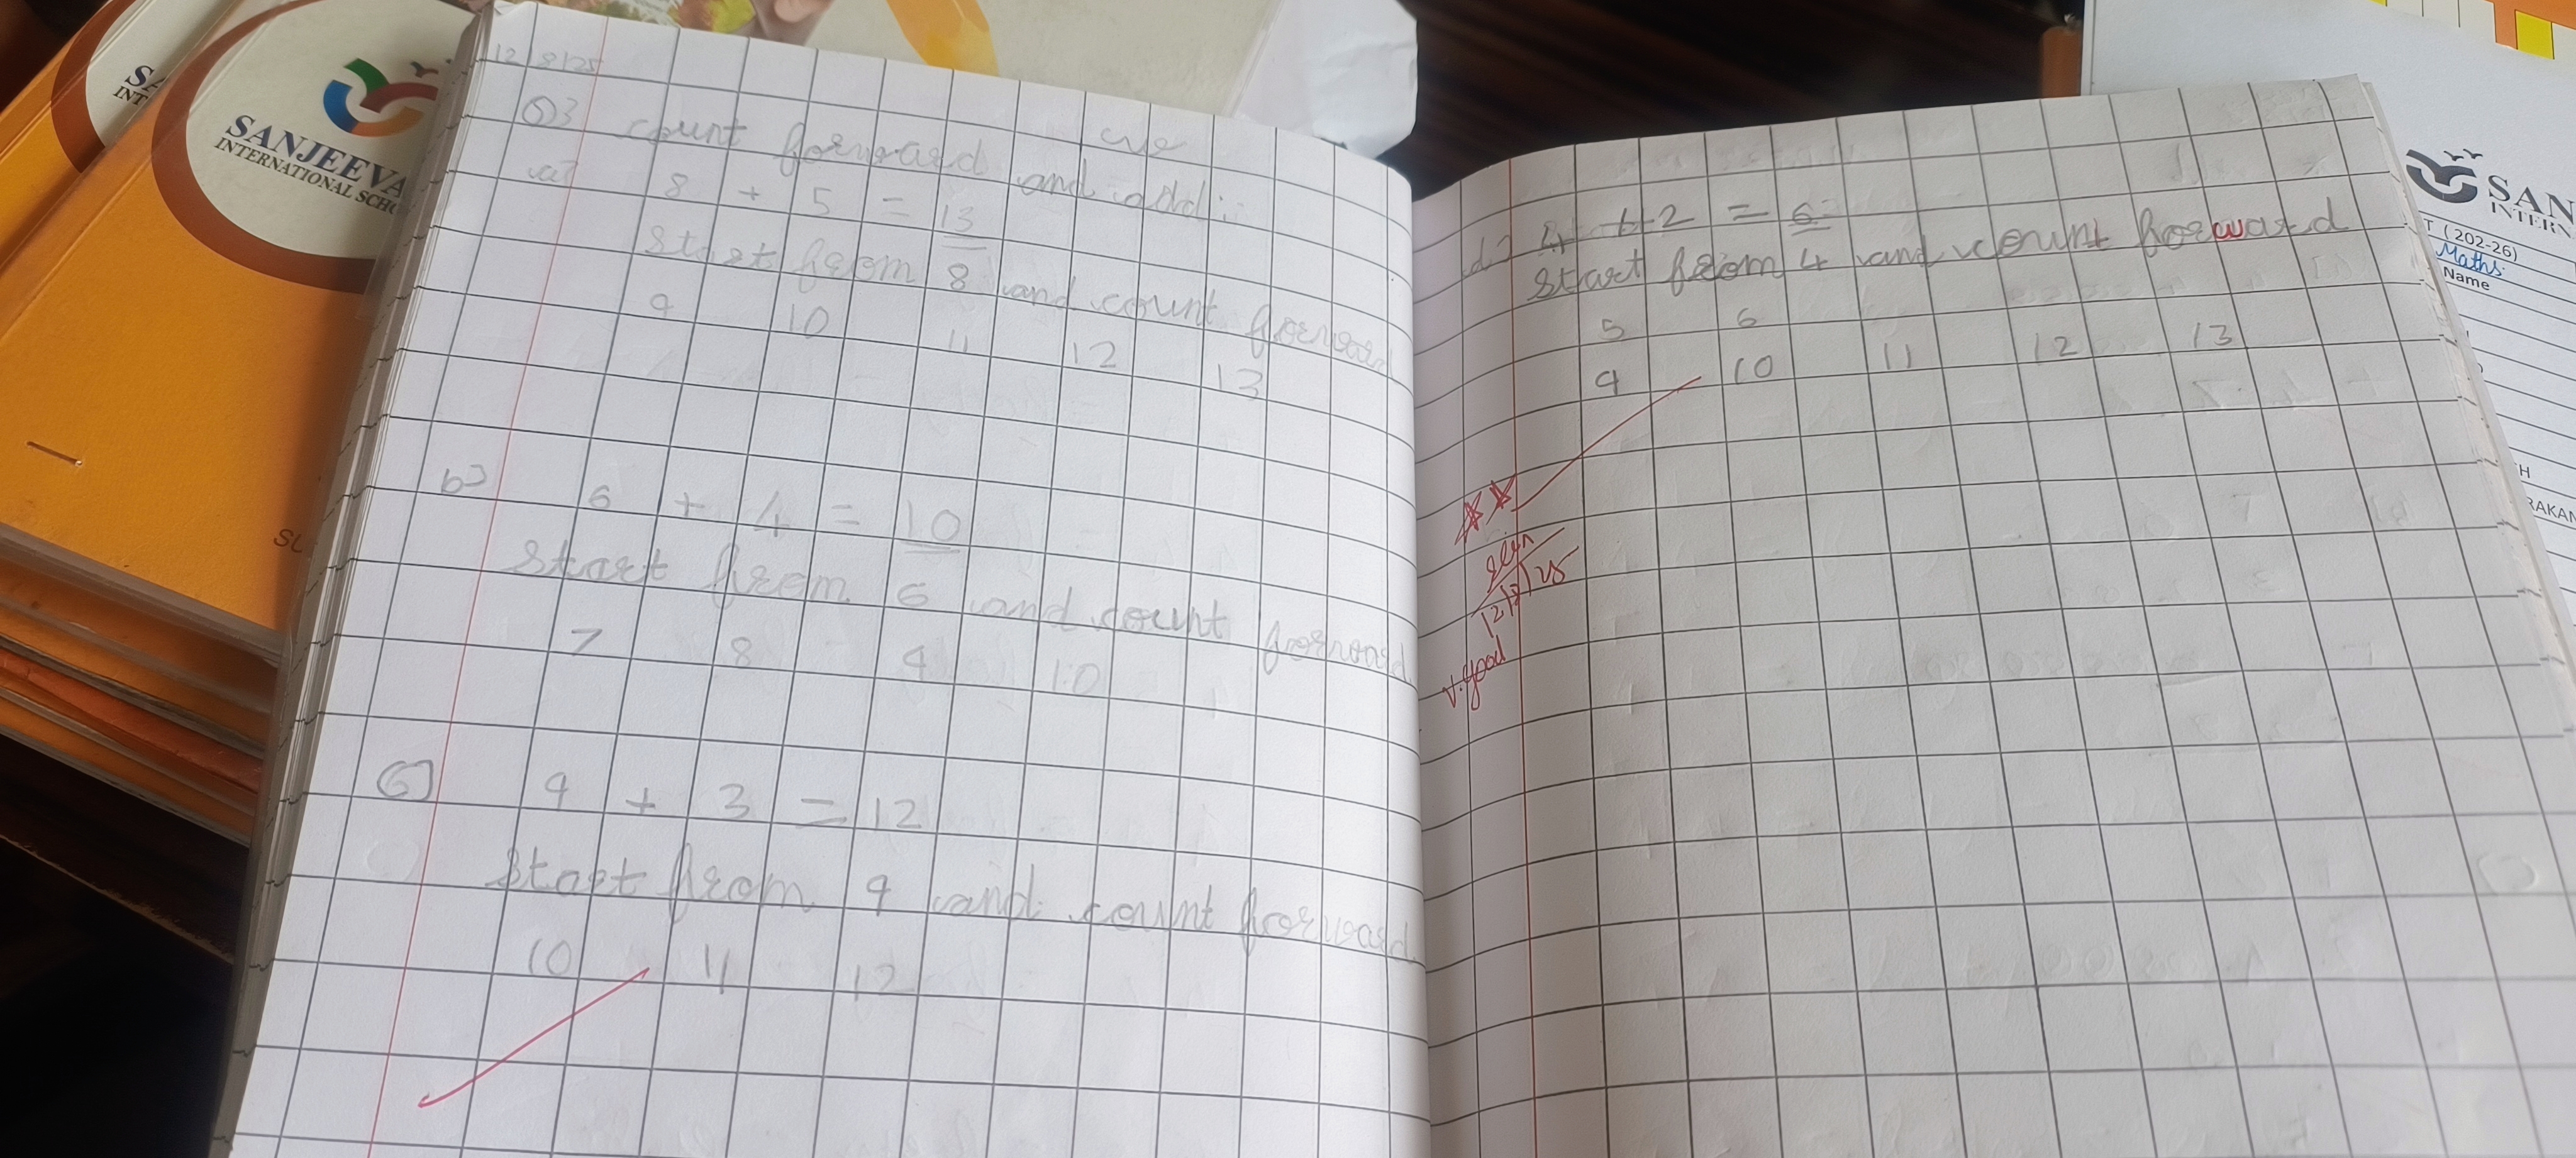 SANJEEVA
INTERNATIONAL SCH
12/8/25
Q)3 count forward we
and add:
a) 8 + 5 = 13
Start from 8 and count forward
9 10 11 12 13
b) 6 + 4 = 10
Start from 6 and count forward
7 8 9 10
9 + 3 = 12
Start from 9 and count forward
10 11 12
d) 4 + 2 = 6
Start from 4 and count forward
5 6
9 10 11 12 13
seen
12/8/25
v.good
SAN
INTERN
T (202-26)
Maths
Name